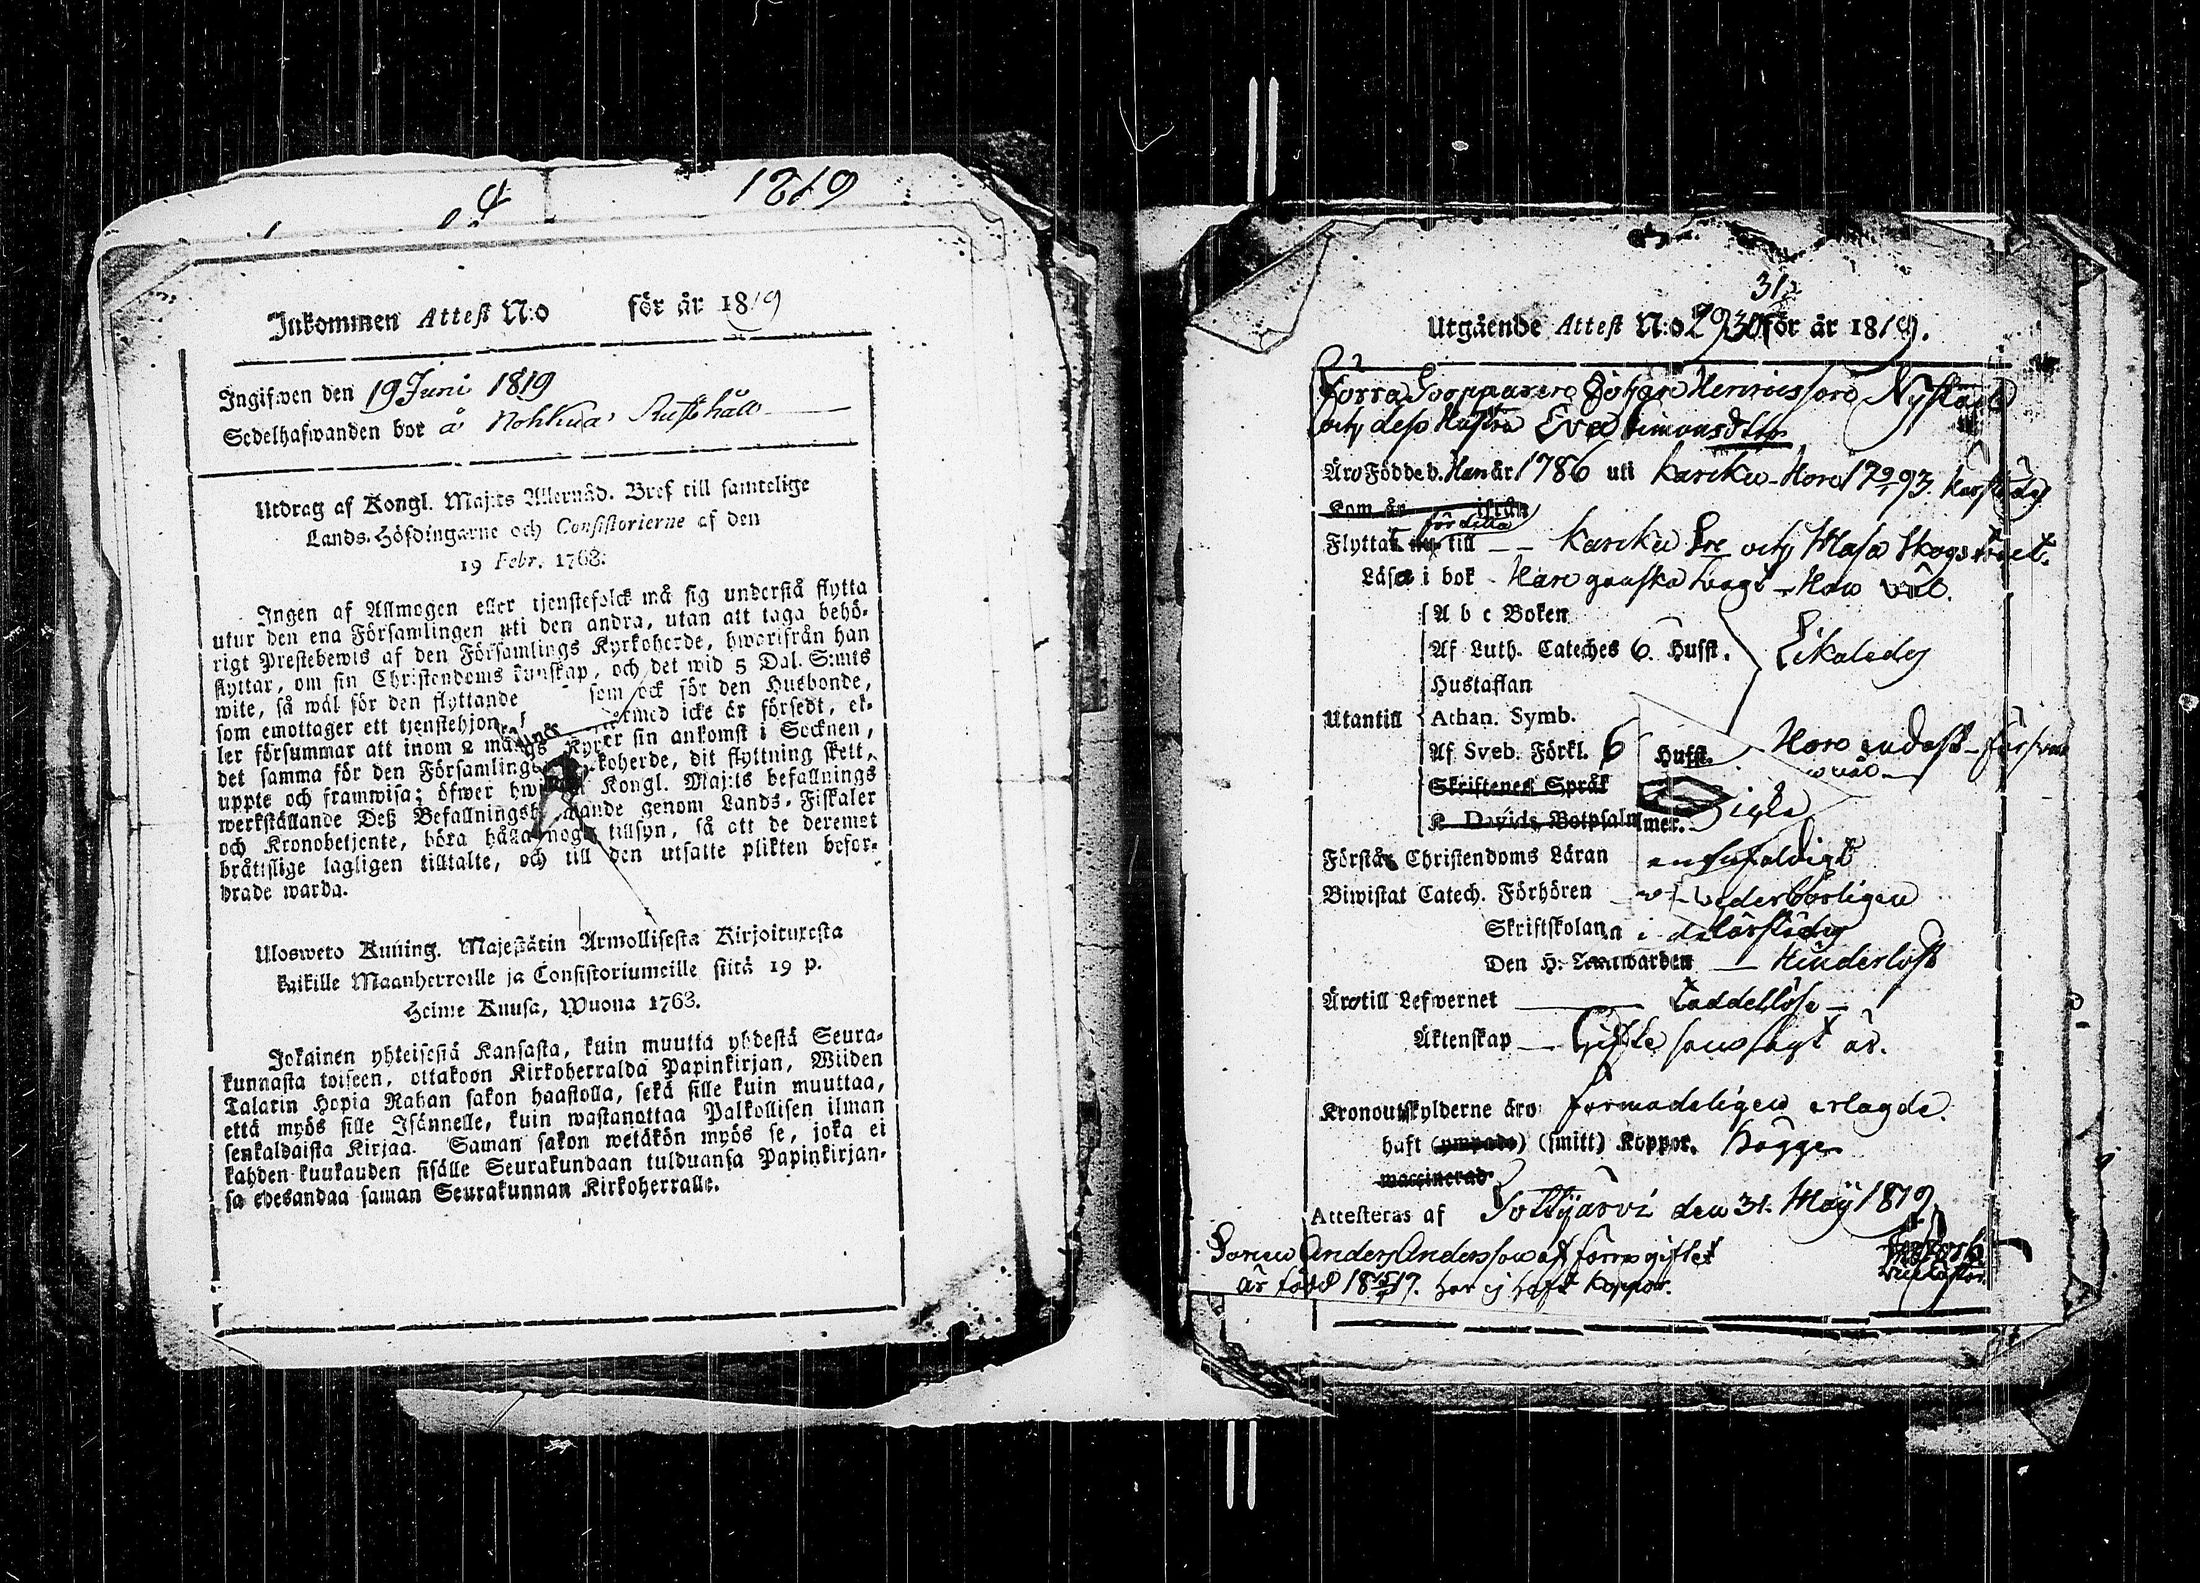 1819
Inkommen Attest N:o för år 1819
Ingifwen den 19 Juni 1819
Sedelhafwanden bor å Nohkua Rusthåll
Utdrag af Kongl. Maj:ts Allernåd. Bref till samtelige
Lands-Höfdingarne och Consistorierne af den
19 Febr. 1768:
Ingen af Allmogen eller tjenstefolck må sig understå flytta
utur den ena Församlingen uti den andra, utan att taga behö-
rigt Prestebewis af den Församlings Kyrkoherde, hwarifrån han
flyttar, om sin Christendoms kunskap, och det wid 5 Dal. S:mts
wite, så wäl för den flyttande som ock för den Husbonde,
som emottager ett tjenstehjon, dermed icke är försedt, el-
ler försummar att inom 2 efter sin ankomst i Socknen,
det samma för den Församlings Kyrkoherde, dit flyttning skett,
uppte och framwisa; öfwer Kongl. Maj:ts befallnings
werkställande Deß Befallningshafwande genom Lands-Fiskaler
och Kronobetjente, böra hålla noga tillsyn, så att de deremot
bråttslige lagligen tilltalte, och till den utsatte plikten befor-
drade warda.
Ulosweto Kuning. Majestätin Armollisesta Kirjoituxesta
kaikille Maanherroille ja Consistoriumeille siitä 19 p.
Helme Kuusa, Wuona 1763.
Jokainen yhteisestä Kansasta, kuin muutta yhdestä Seura-
kunnasta toiseen, ottakoon Kirkoherralda Papinkirjan, Wiiden
Talarin Hopia Rahan sakon haastolla, sekä sille kuin muuttaa,
että myös sille Isännelle, kuin wastanottaa Palkollisen ilman
senkaldaista Kirjaa. Saman sakon wetäkön myös se, joka ei
kahden kuukauden sisälle Seurakundaan tulduansa Papinkirjan-
sa edesandaa saman Seurakunnan Kirkoherralle.
Utgående Attest N:o för år 1819.
Förra Sorpparen Johan Henricsson Nystedt
och dess Hustru Eva Simonsdtr
Äro Födde d. Han år 1786 uti Karcku - Hon 1793.
Kom år ifrån
Flyttat till Karcku
Läsa i bok Han ganska swagt - Hon väl.
A b c Boken
Af Luth. Cateches 6. Husst.
Likaledes
Hustaflan
Utantill Athan. Symb.
Af Sveb. Förkl. 6 Husst. Hon endast
Skriftenes Språk
K. Davids Botpsalmer.
Förstå Christendoms Läran enfaldigt
Biwistat Catech. Förhören wederbörligen
Skriftskolan
Den H. Nattwarden Hinderlöst
Äro till Lefwernet taddellöse
Äktenskap Gifte som sagt är.
Kronoutskylderne äro formodeligen erlagde.
haft (ympade) (smitt) Koppor. bägge
waccinerad
Attesteras af Sottijärvi den 31. Maij 1819
Sonen Anders Andersson af förra giftet
är född 1817. har ej haft koppor.